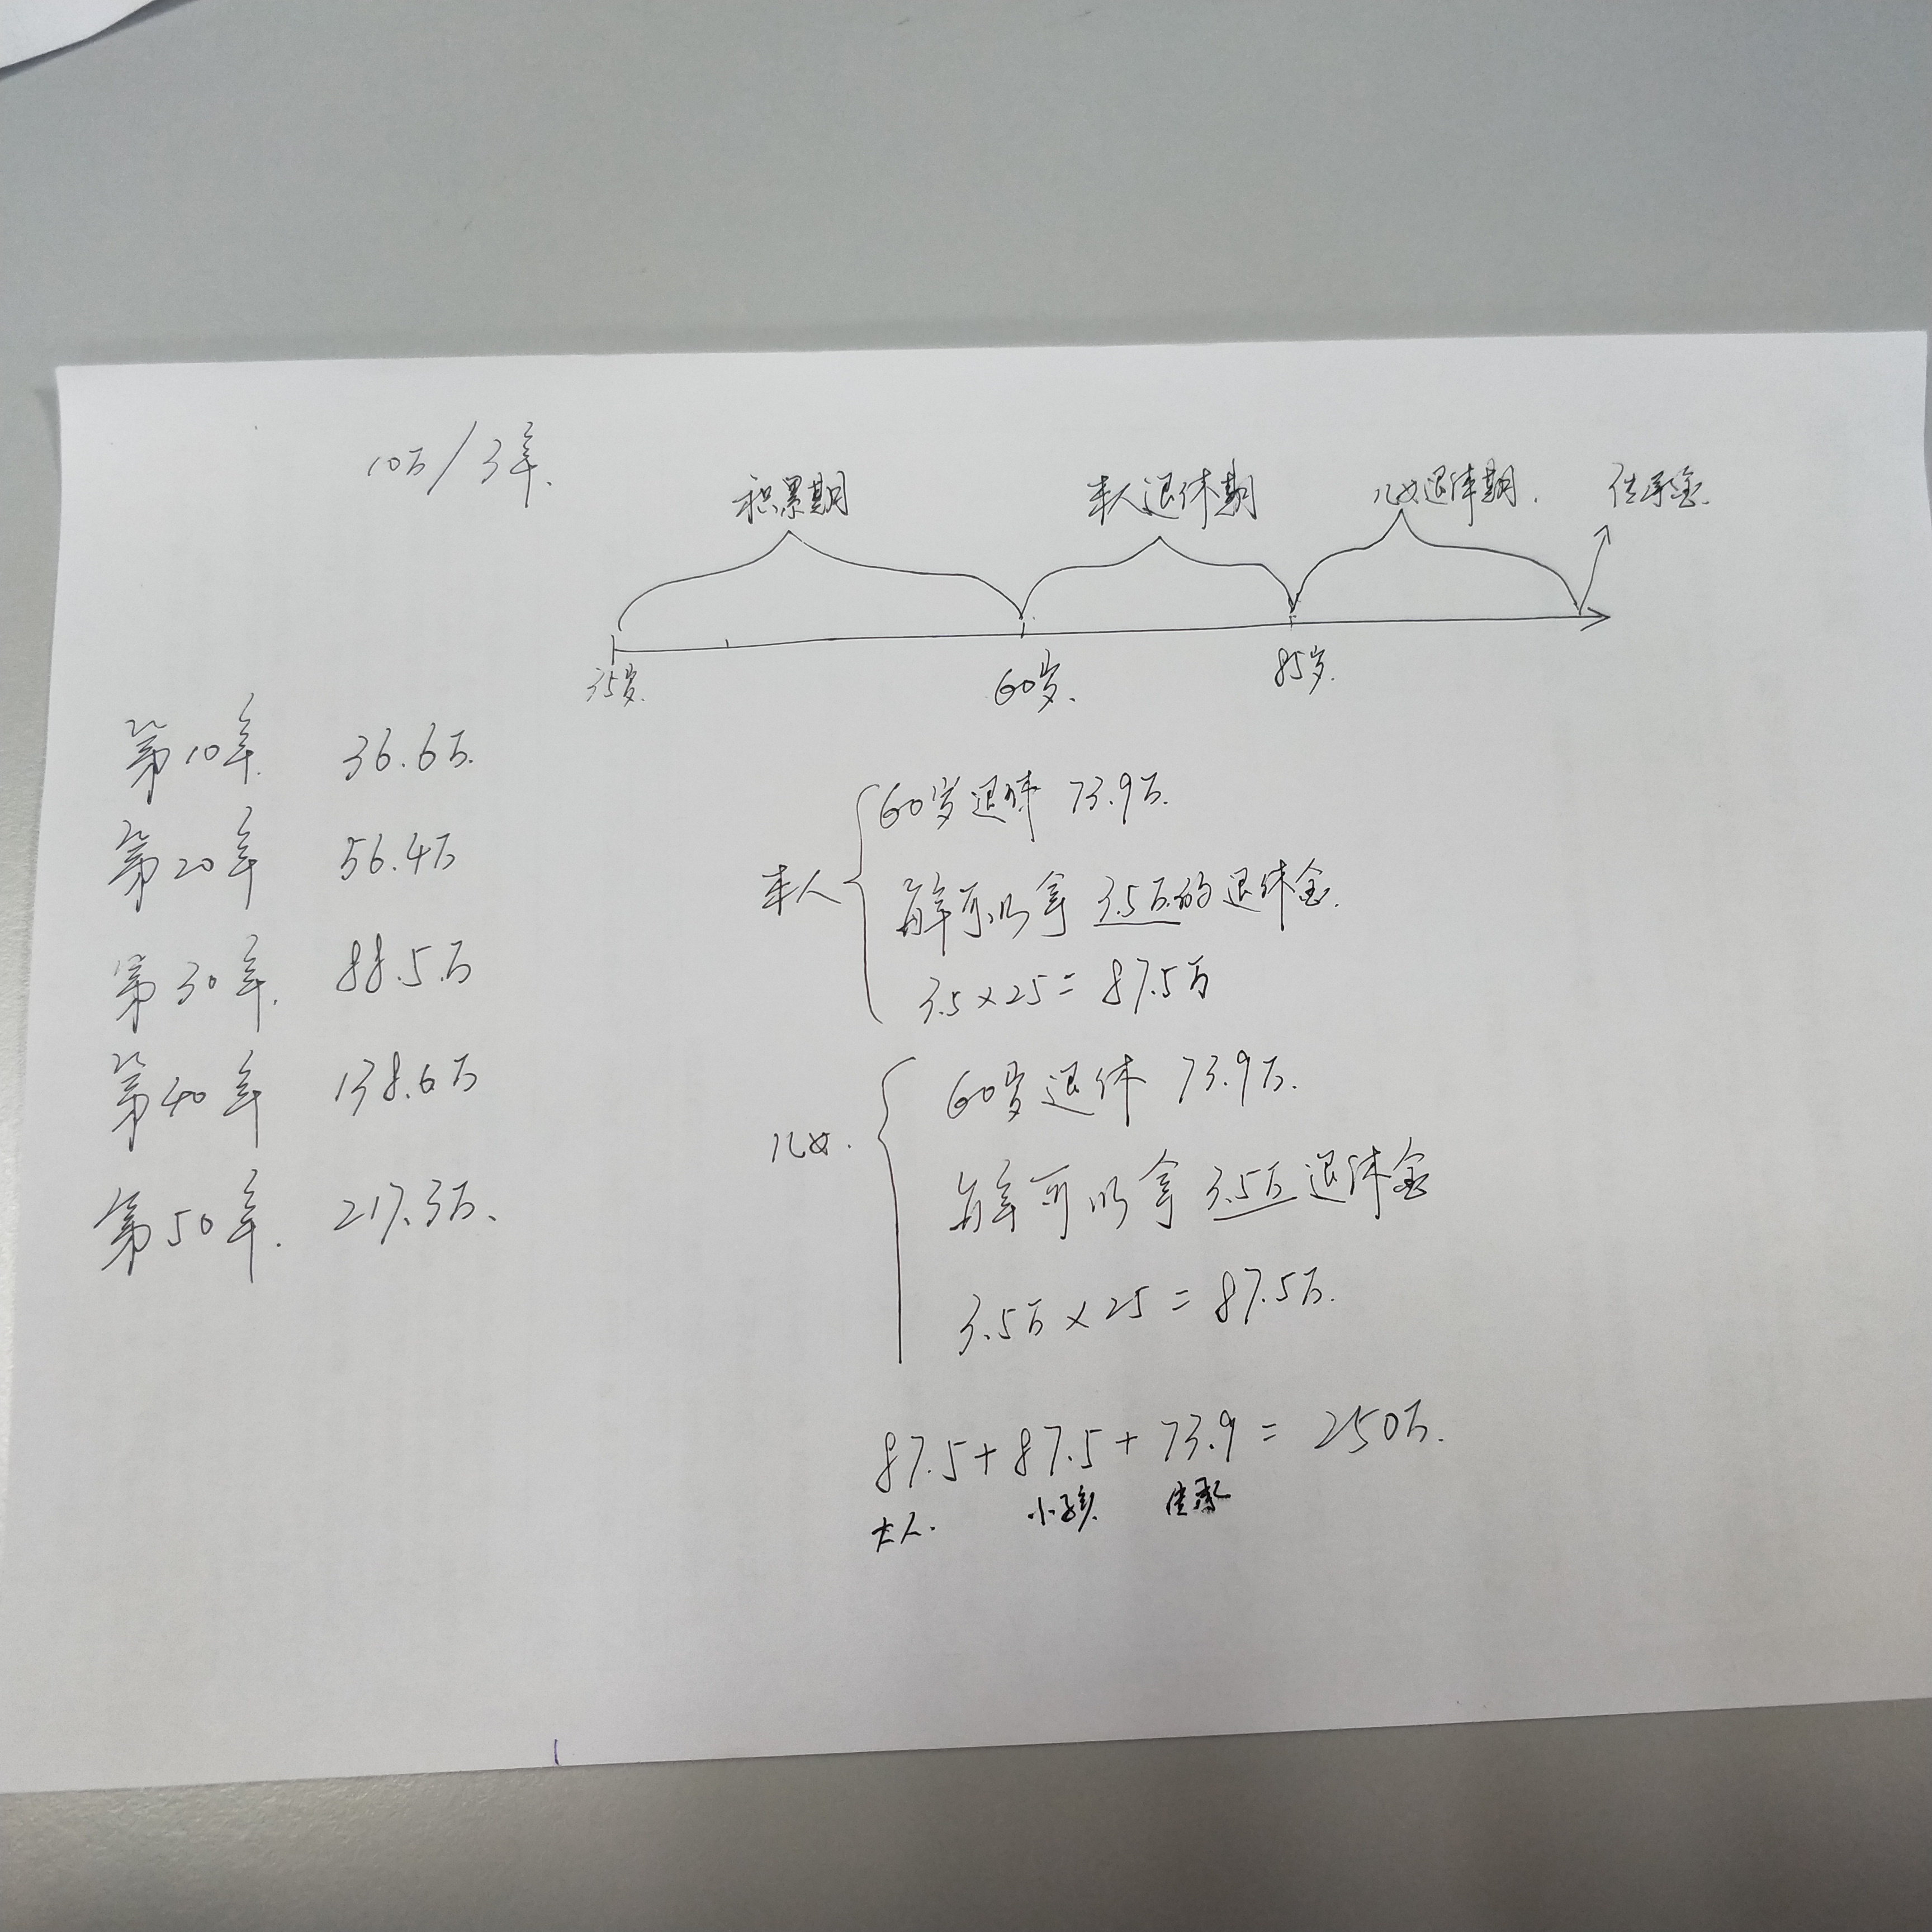 10万/3年.
积累期 本人退休期 儿女退休期. 传承金.
35岁. 60岁. 85岁.
第10年. 36.6万.
第20年 56.4万
第30年. 88.5万
第40年 138.6万
第50年. 217.3万.
本人
60岁退休 73.9万.
每年可以拿 3.5万的退休金.
3.5×25=87.5万
儿女.
60岁退休 73.9万.
每年可以拿 3.5万 退休金
3.5万×25=87.5万.
87.5+87.5+73.9=250万.
大人. 小孩. 传承